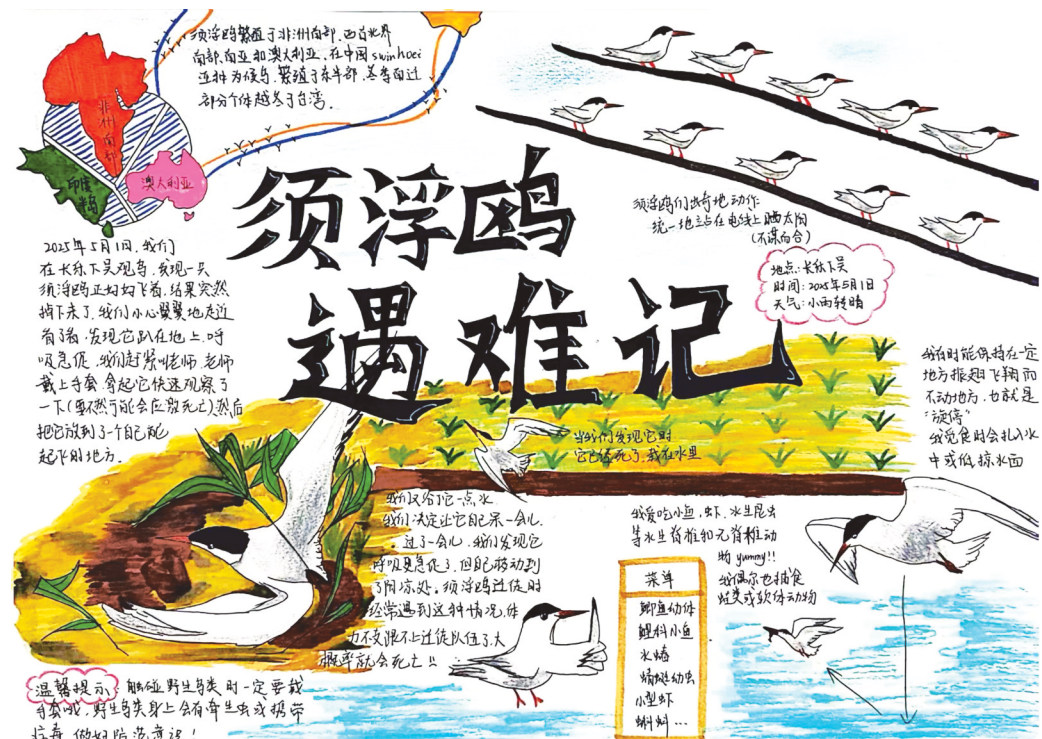 须浮鸥繁殖于非洲南部、西古北界
南部、南亚和澳大利亚、在中国swinhoei
亚种为候鸟、繁殖于东半部、冬季南迁
部分个体越冬于台湾。
非洲南部
印度半岛
澳大利亚
须浮鸥
遇难记
须浮鸥们出奇地动作
统一地立站在电线上晒太阳
(不谋而合)
地点:长株下吴
时间:2025年5月1日
天气:小雨转晴
2025年5月1日,我们
在长株下吴观鸟,发现一只
须浮鸥正好好飞着,结果突然
掉下来了,我们小心翼翼地走近
看了看,发现它趴在地上,呼
吸急促,我们赶紧叫老师,老师
戴上手套,拿起它快速观察了
一下(要不然可能会应激死亡)然后
把它放到了一个自己能
起飞的地方.
当我们发现它时
它已经死了,栽在水里
我有时能保持在一定
地方振翅飞翔而
不动地方,也就是
“旋停”
我觅食时会扎入水
中或低掠水面
我们又给了它一点水
我们决定让它自己呆一会儿.
过了一会儿,我们发现它
呼吸急促了,但自己移动到
了阴凉处。须浮鸥迁徙时
经常遇到这种情况,体
力不支跟不上迁徙队伍了,大
概率就会死亡!!
我爱吃小鱼,虾、水生昆虫
等水生脊椎和无脊椎动
物 yummy!!
我偶尔也捕食
蛙类或软体动物
菜单
鲫鱼幼体
鲤科小鱼
水蛾
蜻蜓幼虫
小型虾
蝌蚪…
温馨提示:触碰野生鸟类时一定要戴
手套哦,野生鸟类身上会有寄生虫或携带
病毒,做好防范意识!